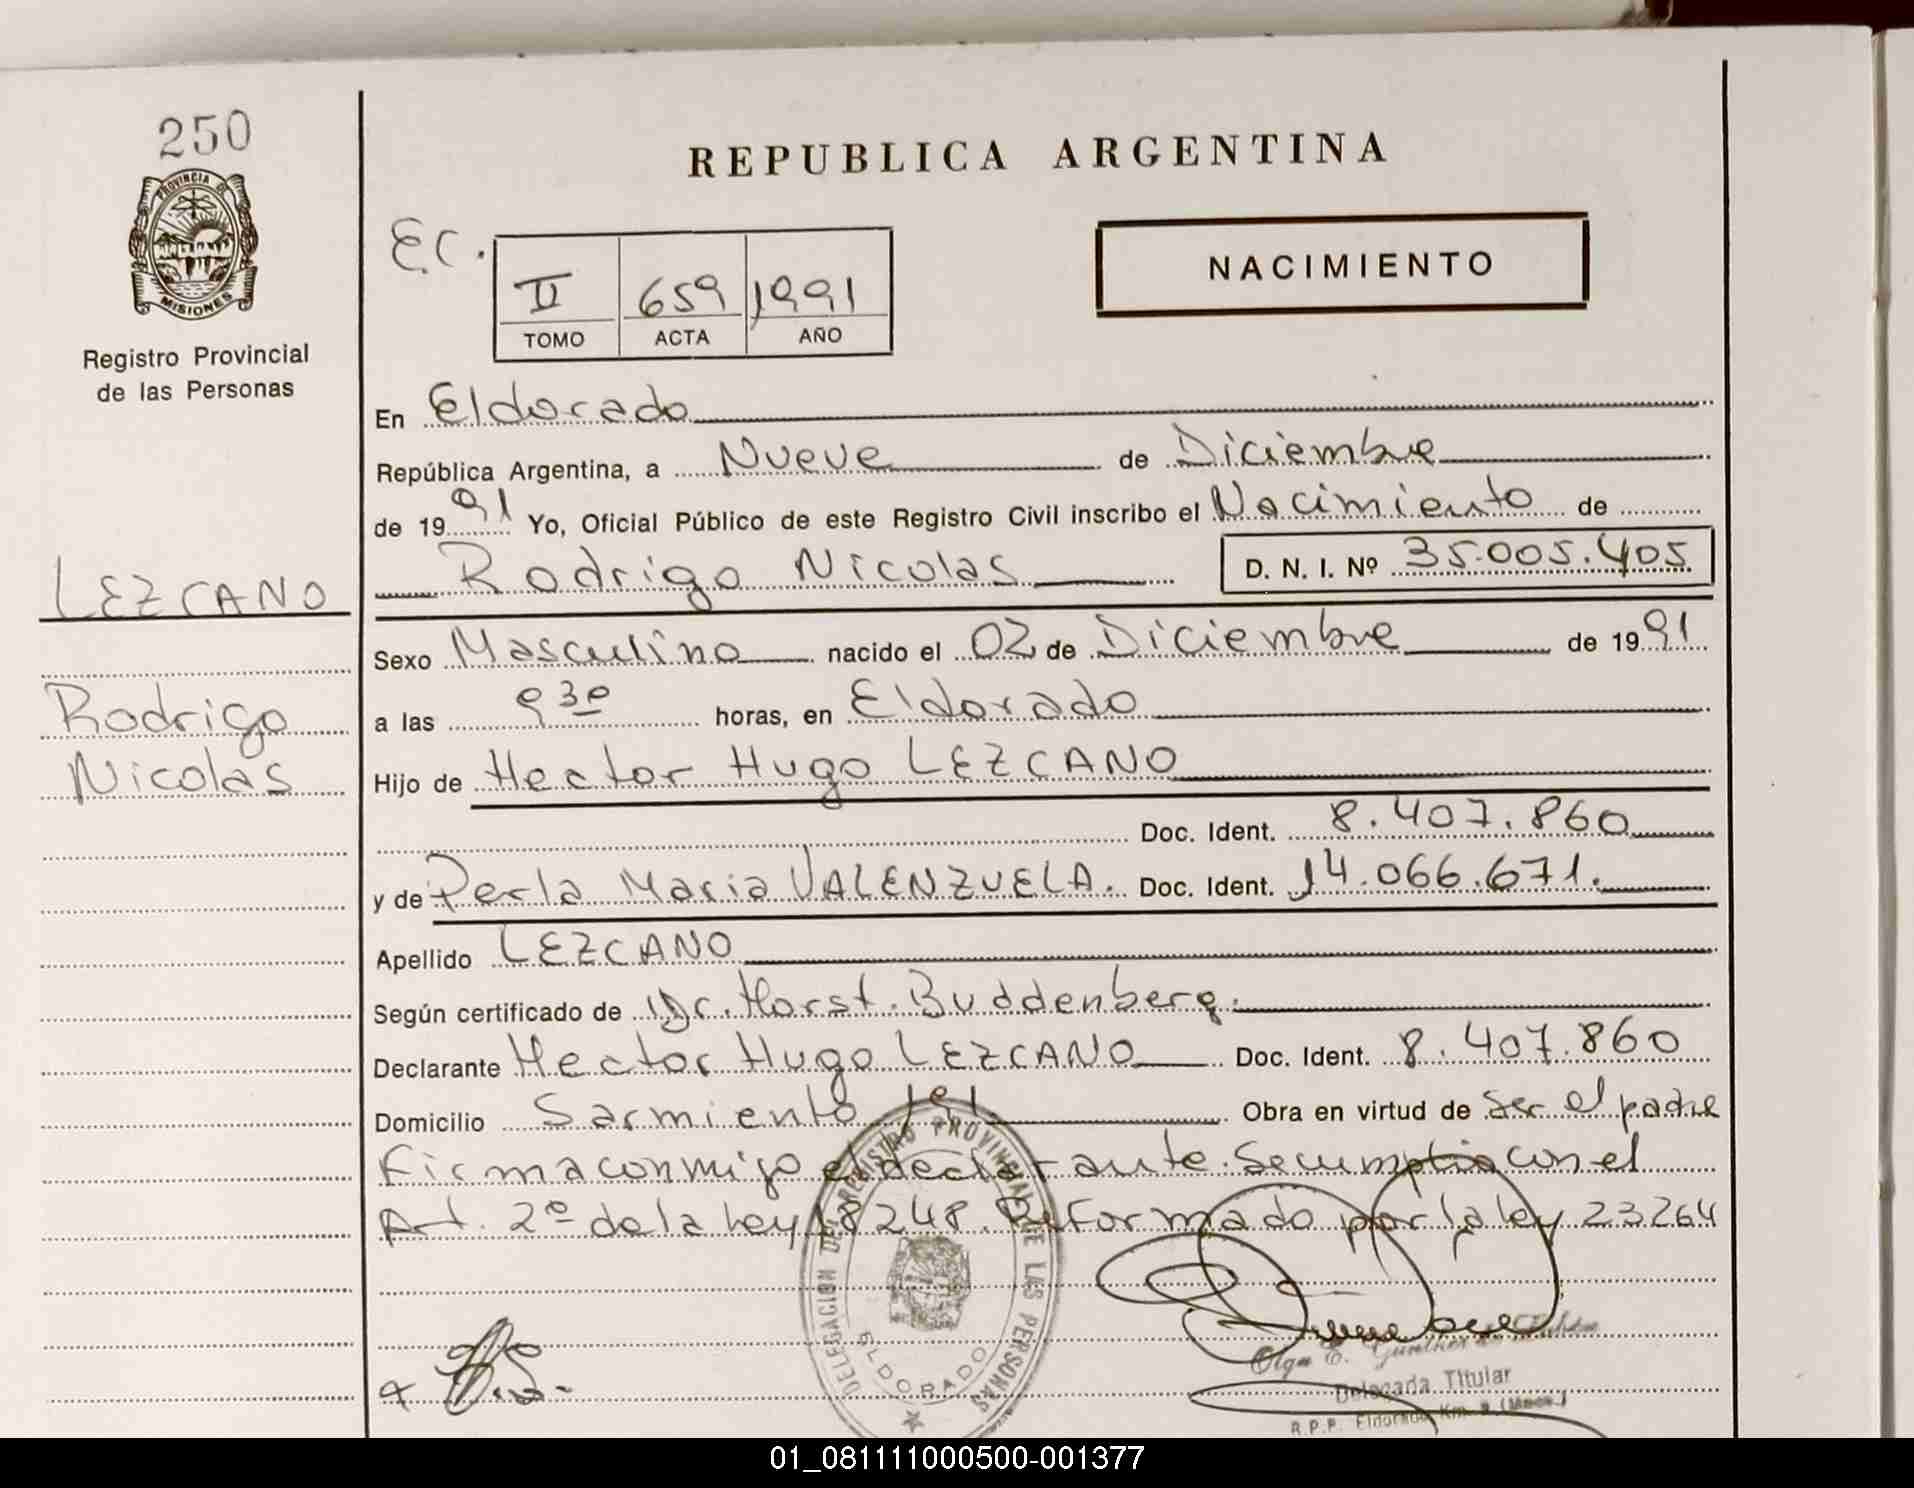 250
PROVINCIA DE
MISIONES
Registro Provincial
de las Personas
LEZCANO
Rodrigo
Nicolas
REPUBLICA ARGENTINA
E.C.
II 659 1991
TOMO ACTA AÑO
NACIMIENTO
En Eldorado
República Argentina, a Nueve de Diciembre
de 1991 Yo, Oficial Público de este Registro Civil inscribo el Nacimiento de
Rodrigo Nicolas D. N. I. Nº 35.005.405
Sexo Masculino nacido el 02 de Diciembre de 1991
a las 9 30 horas, en Eldorado
Hijo de Hector Hugo LEZCANO
Doc. Ident. 8.407.860
y de Perla Maria VALENZUELA. Doc. Ident. 14.066.671.
Apellido LEZCANO
Según certificado de Dr. Horst. Buddenberg.
Declarante Hector Hugo LEZCANO Doc. Ident. 8.407.860
Domicilio Sarmiento 191 Obra en virtud de ser el padre
Firma conmigo el declarante. Se cumplio con el
Art. 2º de la Ley 18248. Reformado por la ley 23264
DELEGACION DEL REGISTRO PROVINCIAL DE LAS PERSONAS
ELDORADO
Olga E. Gunther de
Delegada Titular
R.P.P. Eldorado Km. 9 (Mnes.)
01_081111000500-001377